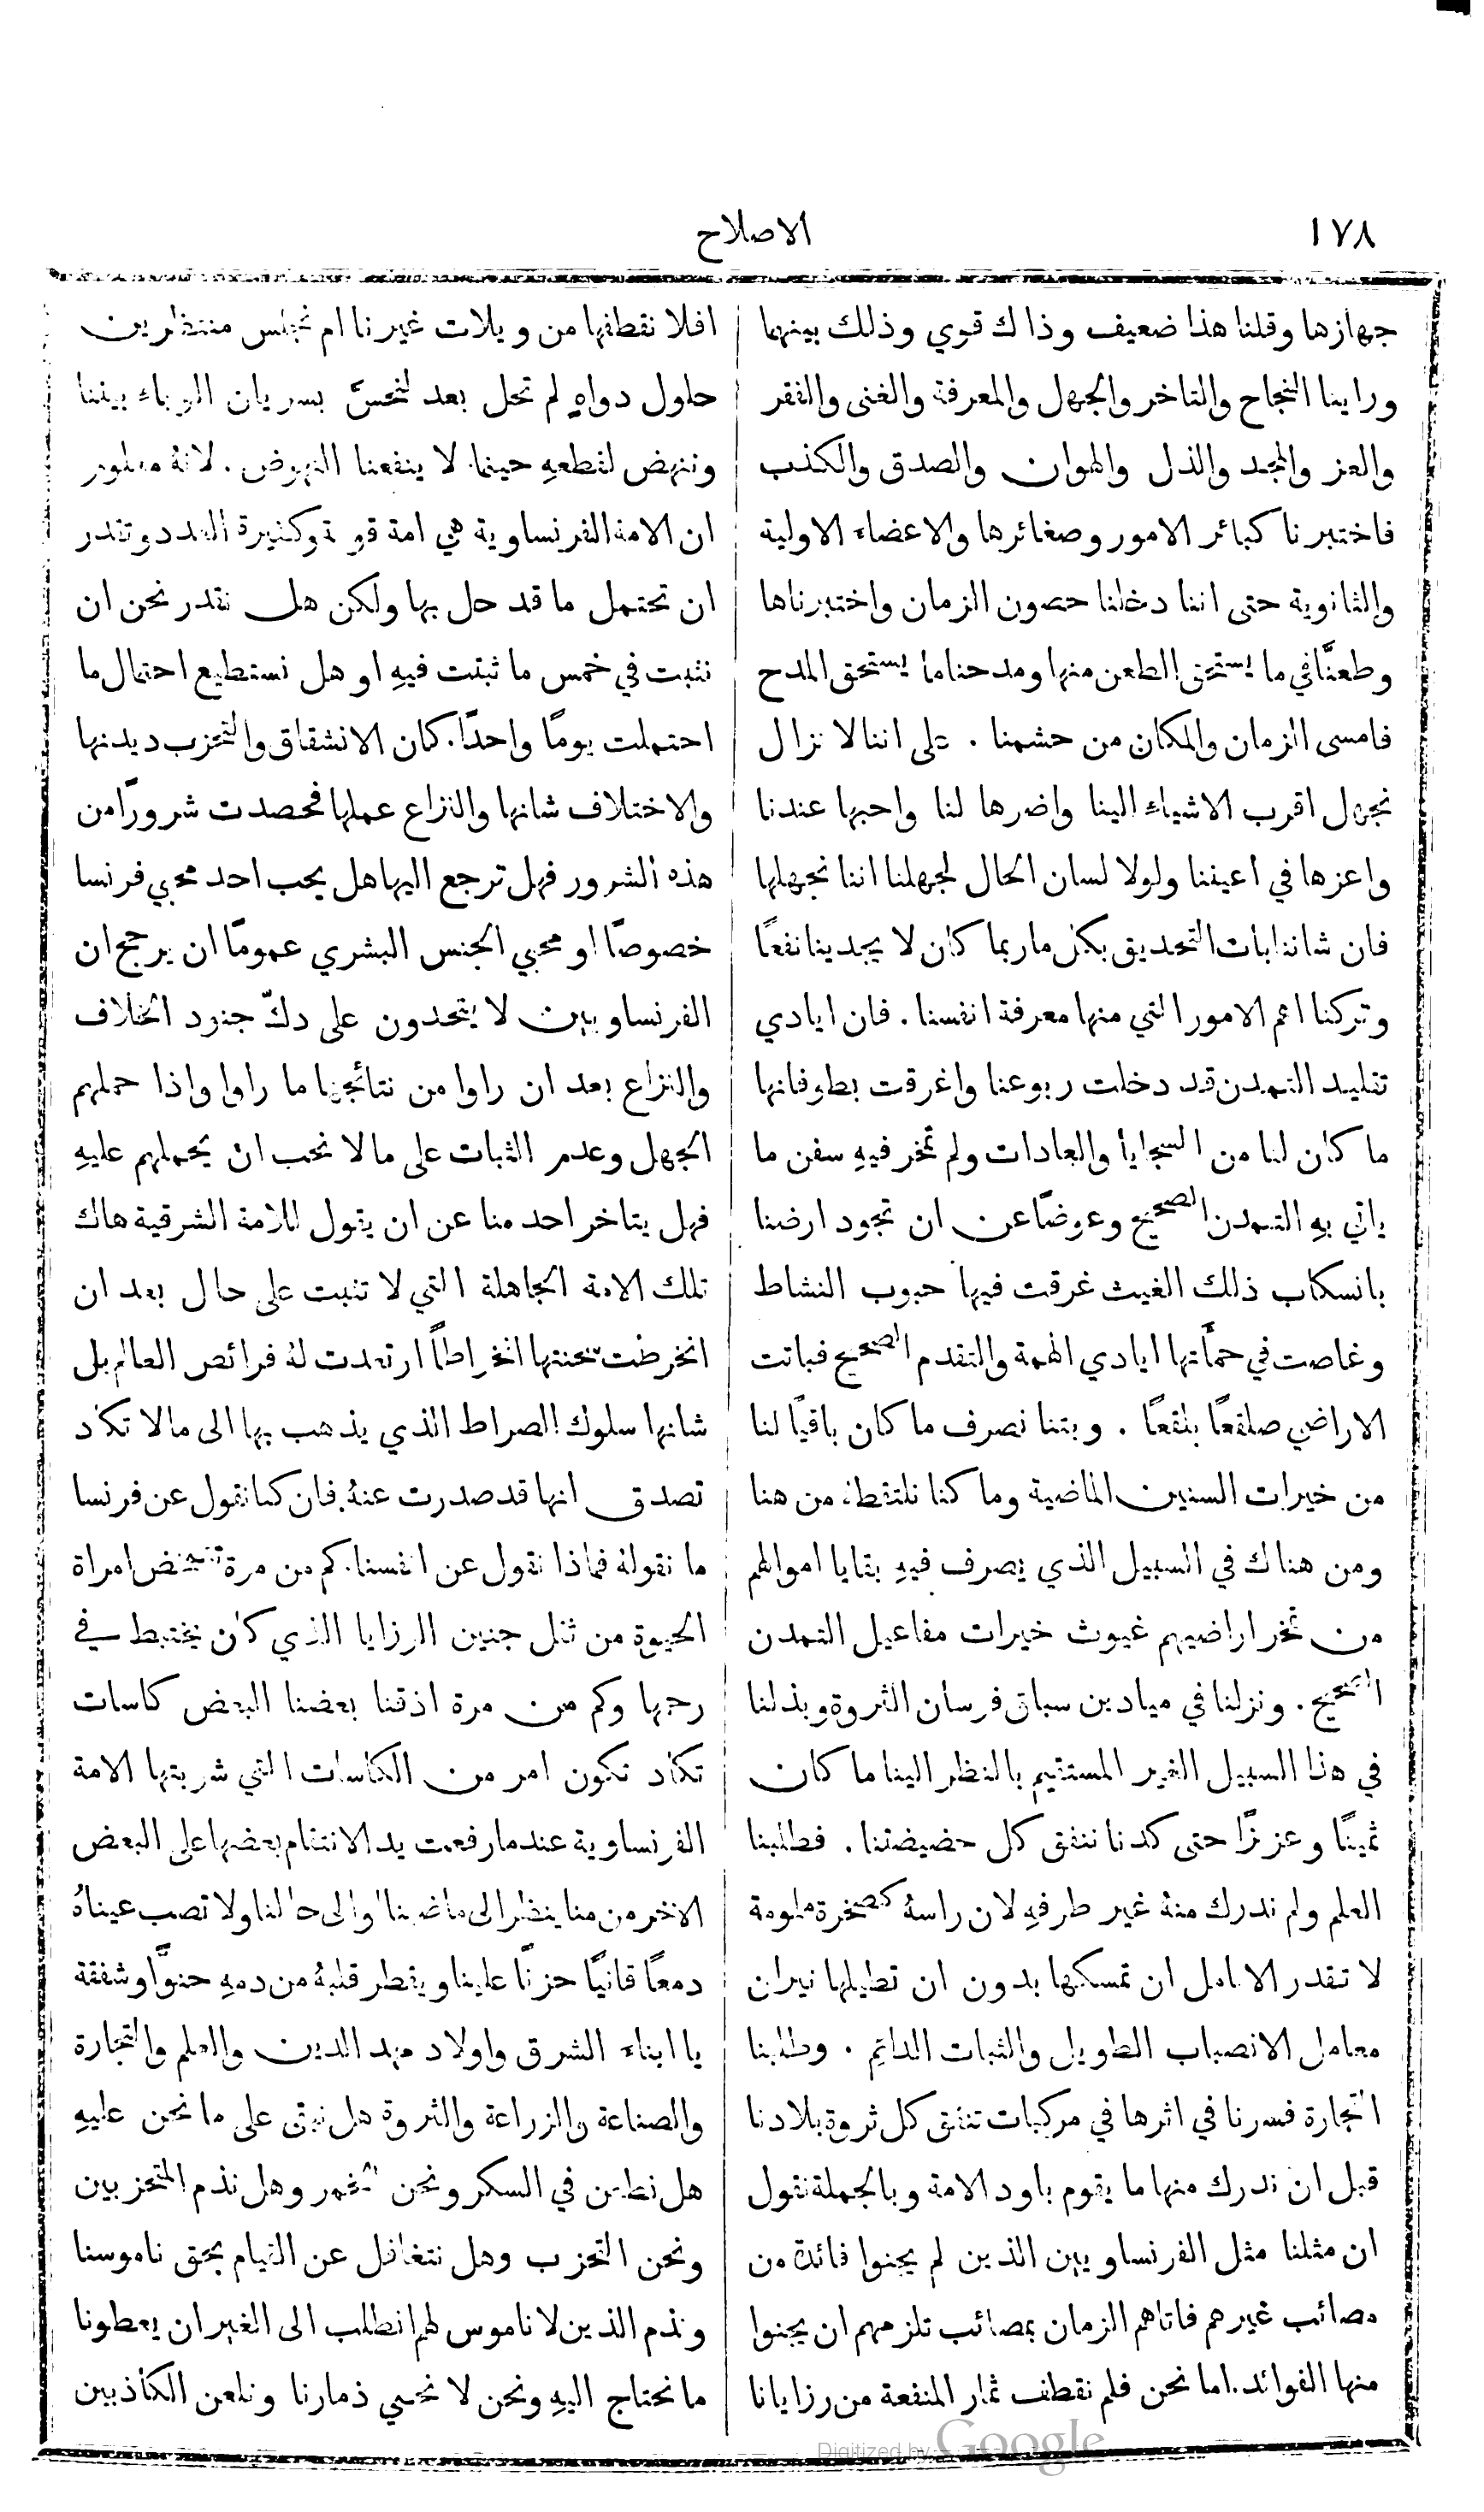 ١٧٨
الاصلاح
جهازها وقلنا هذا ضعيف وذاك قوي وذلك بينهما
وراينا النجاح والتاخر والجهل والمعرفة والغنى والفقر
والعز والمجد والذل والهوان والصدق والكذب
فاختبرنا كبائر الامور وصغائرها والاعضاء الاولية
والثانوية حتى اننا دخلنا حصون الزمان واختبرناها
وطعنَّا في ما يستحق الطعن منها ومدحنا ما يستحق المدح
فامسى الزمان والمكان من حشمنا . على اننا لا نزال
نجهل اقرب الاشياء الينا واضرها لنا واحبها عندنا
واعزها في اعيننا ولولا لسان الحال لجهلنا اننا نجهلها
فان شاننا بات التحديق بكل ما ربما كان لا يجدينا نفعًا
وتركنا اهم الامور التي منها معرفة انفسنا . فان ايادي
تقليد التمدن قد دخلت ربوعنا واغرقت بطوفانها
ما كان لنا من السجايا والعادات ولم تمخر فيهِ سفن ما
ياتي بهِ التمدن الصحيح وعوضًا عن ان تجود ارضنا
بانسكاب ذلك الغيث غرقت فيها حبوب النشاط
وغاصت في حمأتها ايادي الهمة والتقدم الصحيح فباتت
الاراضي صلقعًا بلقعًا . وبتنا نصرف ما كان باقيًا لنا
من خيرات السنين الماضية وما كنا نلتقطهُ من هنا
ومن هناك في السبيل الذي يصرف فيهِ بقايا اموالهم
من تمخر اراضيهم غيوث خيرات مفاعيل التمدن
الصحيح . ونزلنا في ميادين سباق فرسان الثروة وبذلنا
في هذا السبيل الغير المستقيم بالنظر الينا ما كان
ثمينًا وعزيزًا حتى كدنا ننفق كل حضيضتنا . فطلبنا
العلم ولم ندرك منهُ غير طرفهِ لان راسهُ كصخرة ملومة
لا تقدر الانامل ان تمسكها بدون ان تطيلها نيران
معامل الانصباب الطويل والثبات الدائم . وطلبنا
التجارة فسرنا في اثرها في مركبات تنفق كل ثروة بلادنا
قبل ان ندرك منها ما يقوم باود الامة وبالجملة نقول
ان مثلنا مثل الفرنساويين الذين لم يجنوا فائدة من
مصائب غيرهم فاتاهم الزمان بمصائب تلزمهم ان يجنوا
منها الفوائد. اما نحن فلم نقطف ثمار المنفعة من رزايانا
افلا نقطفها من ويلات غيرنا ام نجلس منتظرين
حلول دواهٍ لم تحل بعد لنحسَّ بسريان الوباء بيننا
وننهض لقطعهِ حينما لا ينفعنا النهوض . لانهُ معلوم
ان الامة الفرنساوية هي امة قوية وكثيرة العدد وتقدر
ان تحتمل ما قد حل بها ولكن هل نقدر نحن ان
نثبت في خمس ما ثبتت فيهِ او هل نستطيع احتمال ما
احتملت يومًا واحدًا. كان الانشقاق والتحزب ديدنها
والاختلاف شانها والنزاع عملها فحصدت شرورًا من
هذه الشرور فهل ترجع اليها هل يحب احد محبي فرنسا
خصوصًا او محبي الجنس البشري عمومًا ان يرجح ان
الفرنساويين لا يتحدون على دكّ جنود الخلاف
والنزاع بعد ان راوا من نتائجها ما راوا واذا حملهم
الجهل وعدم الثبات على ما لا نحب ان يحملهم عليهِ
فهل يتاخر احد منا عن ان يقول للامة الشرقية هاك
تلك الامة الجاهلة التي لا تثبت على حال بعد ان
انخرطت سحنتها انخراطًا ارتعدت لهُ فرائص العالم بل
شانها سلوك الصراط الذي يذهب بها الى ما لا تكاد
تصدق انها قد صدرت عنهُ. فان كما نقول عن فرنسا
ما نقولهُ فماذا نقول عن انفسنا. كم من مرة امراة
الحيوة من ثقل جنين الرزايا الذي كان يختبط في
رحمها وكم من مرة اذقنا بعضنا البعض كاسات
تكاد تكون امر من الكاسات التي شربتها الامة
الفرنساوية عندما رفعت يد الانتقام بعضها على البعض
الاخر من منا ينظر الى ماضينا والى حالنا ولا تصب عيناهُ
دمعًا قانيًا حزنًا علينا ويقطر قلبهُ من دمهِ حنوًّا وشفقة
يا ابناء الشرق واولاد مهد الدين والعلم والتجارة
والصناعة والزراعة والثروة هل نبقى على ما نحن عليهِ
هل نطعن في السكر ونحن وهل نذم المتحزبين
ونحن التحزب وهل نتغافل عن القيام بحق ناموسنا
ونذم الذين لا ناموس لهم انطلب الى الغير ان يعطونا
ما نحتاج اليهِ ونحن لا نحمي ذمارنا ونلعن الكاذبين
Digitized by Google